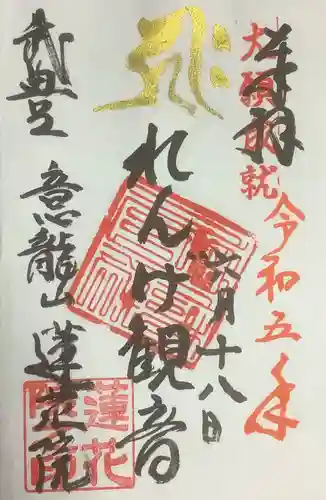 奉拝
大願成就
令和五年
四月十八日
れんげ観音
意龍山 蓮花院
蓮花